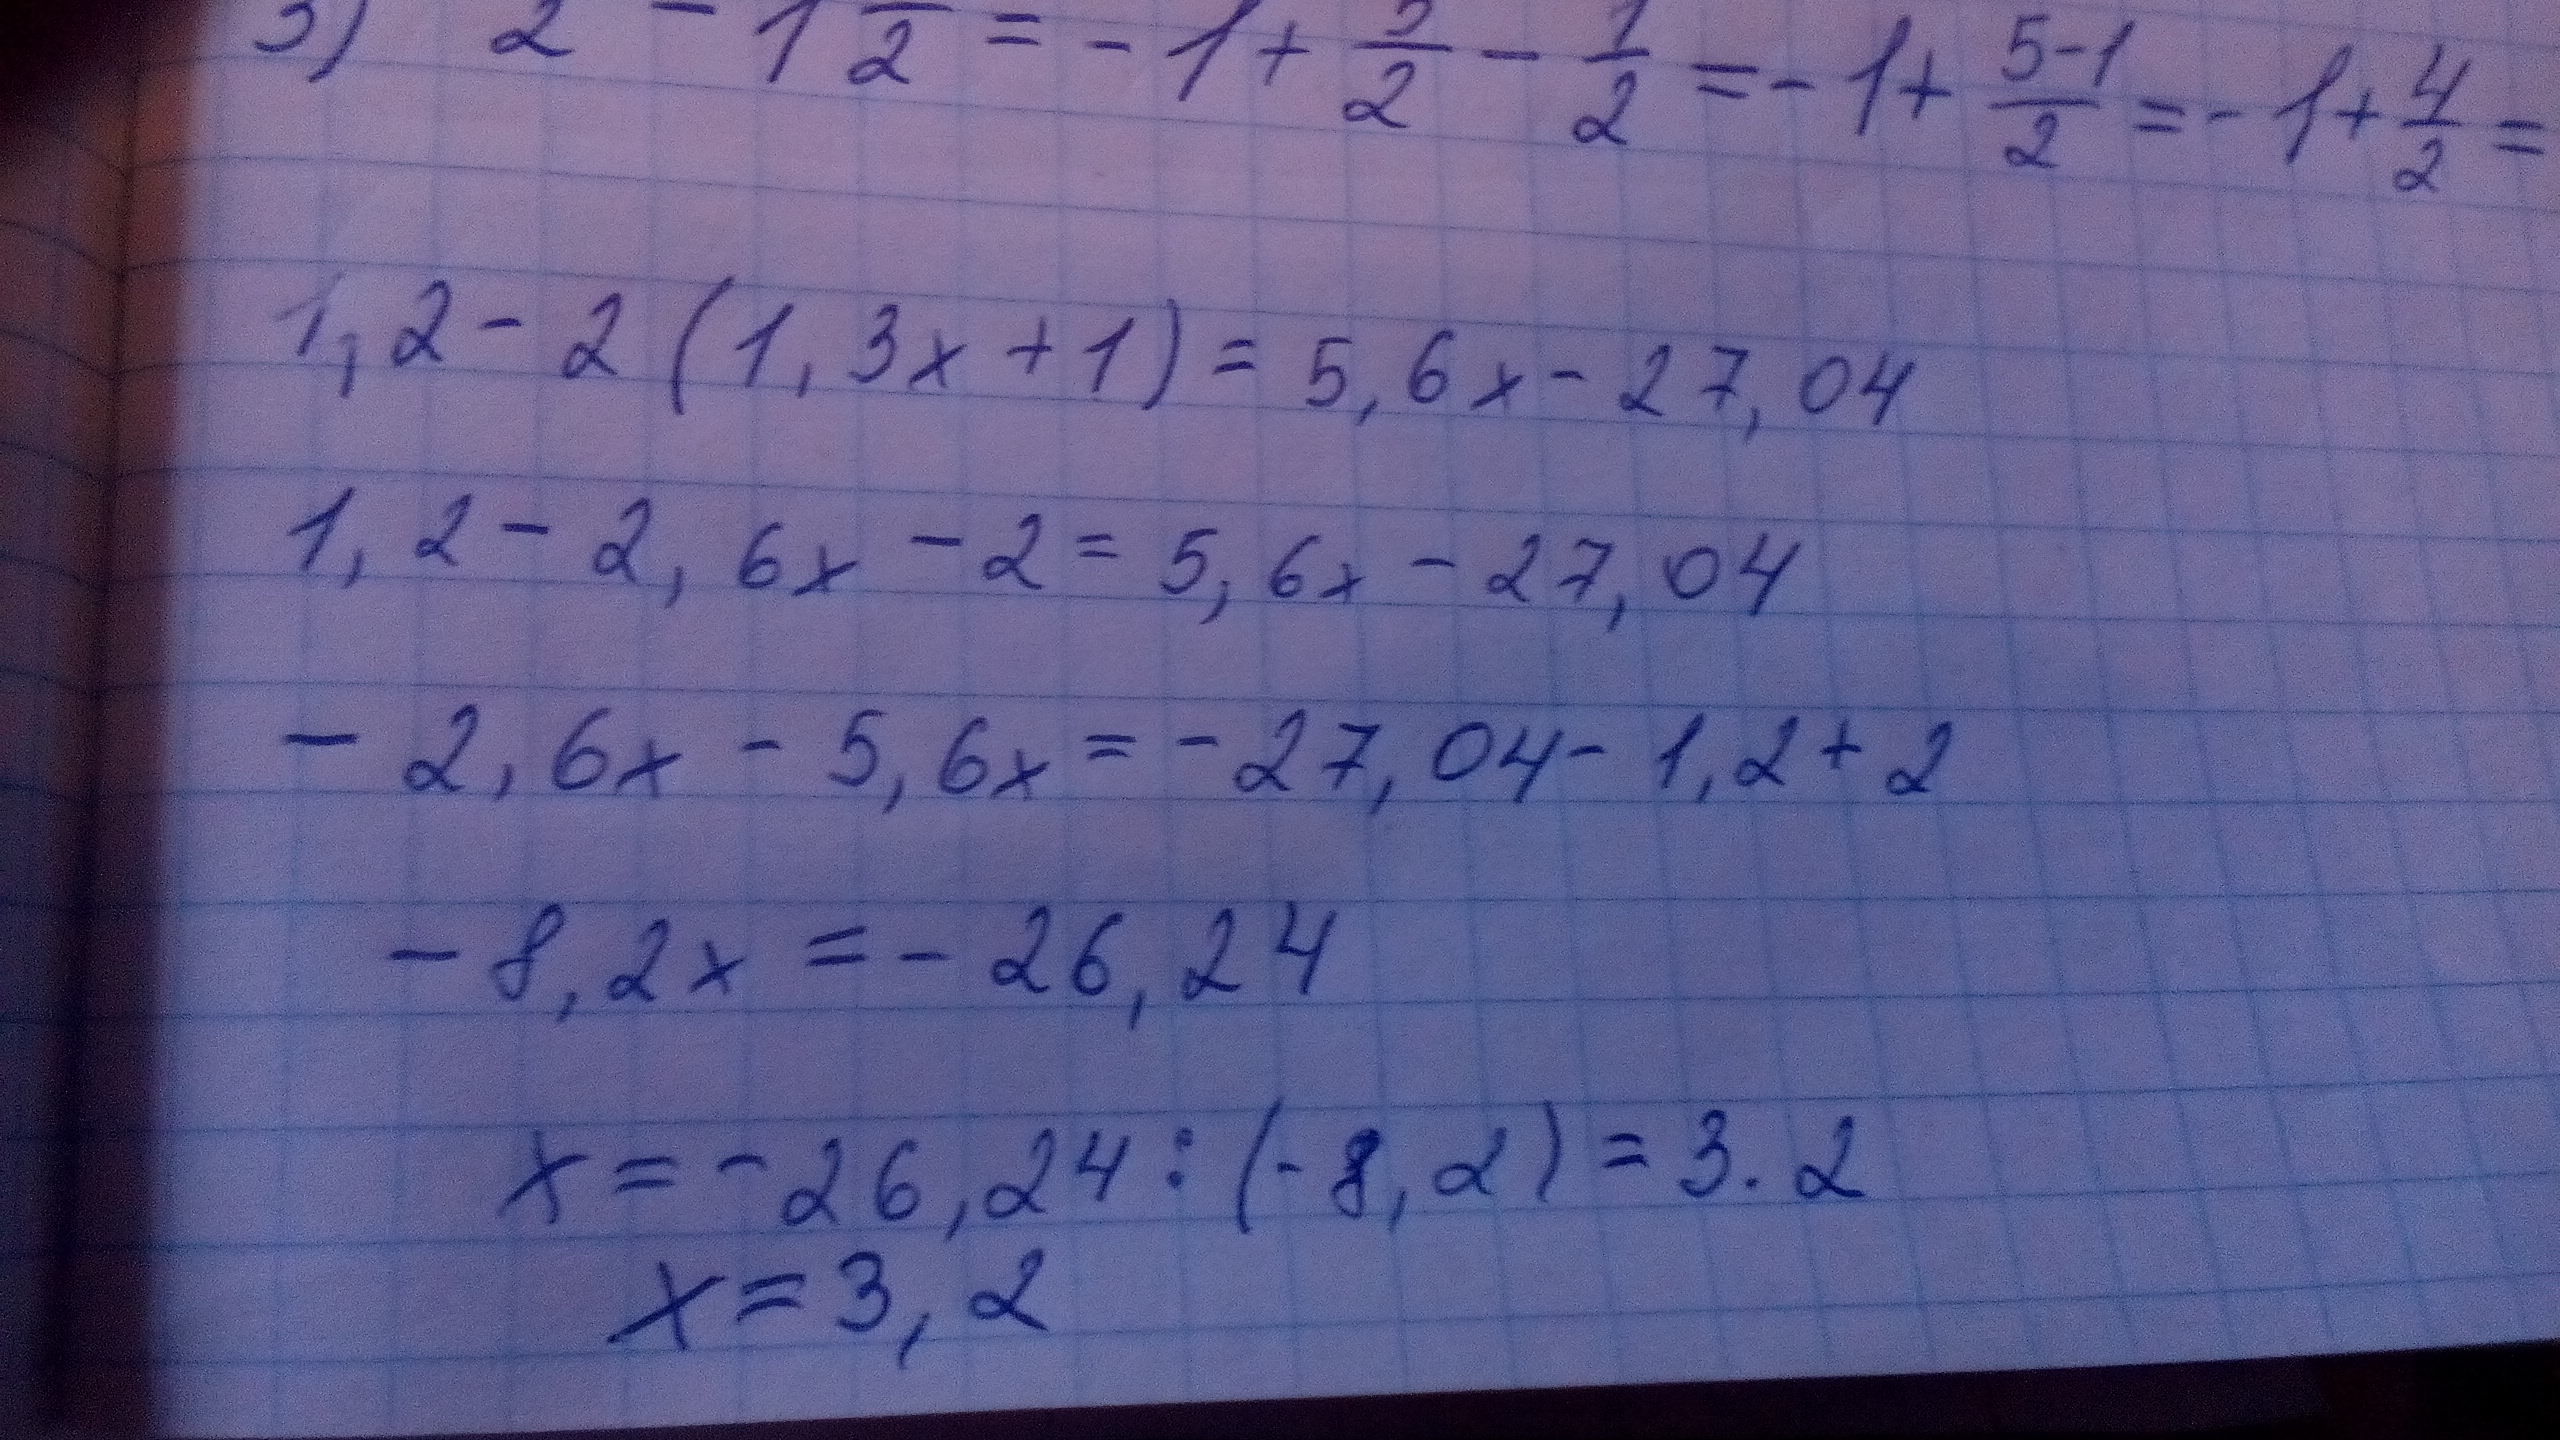 3) 2 - 1 2 = - 1 + 5/2 - 1/2 = - 1 + (5-1)/2 = - 1 + 4/2 =
1,2 - 2 (1,3x + 1) = 5,6x - 27,04
1,2 - 2,6x - 2 = 5,6x - 27,04
- 2,6x - 5,6x = - 27,04 - 1,2 + 2
- 8,2x = - 26,24
x = - 26,24 : (- 8,2) = 3.2
x = 3,2